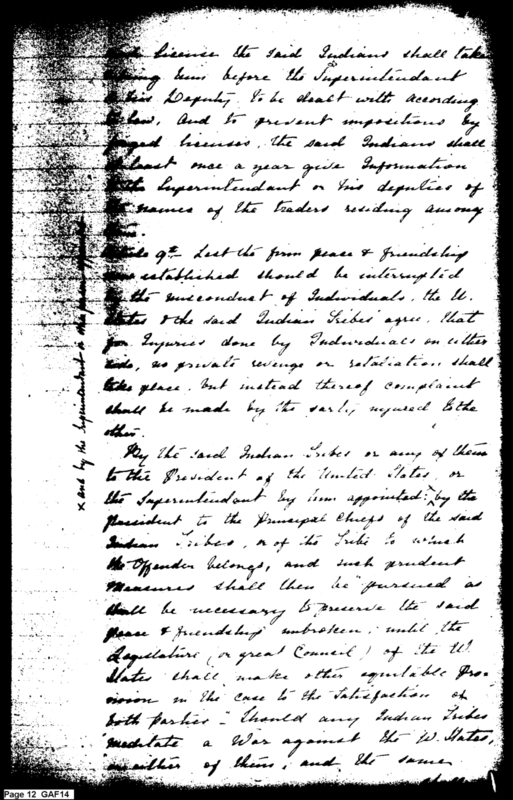 such License the said Indians shall take
& bring him before the Superintendant
or his Deputy, to be dealt with according
to law, And to prevent impositions by
forged licenses, the said Indians shall
at least once a year give Information
to the Superintendant or his deputies of
the names of the traders residing among
them.
Article 9th Lest the firm peace & friendship
now established should be interrupted
by the misconduct of Individuals, the U.
States & the said Indian Tribes agree, that
for Injuries done by Individuals on either
side, no private revenge or retaliation shall
take place, but instead thereof complaint
shall be made by the party injured to the
other.
By the said Indian Tribes or any of them
to the President of the United States or
the Superintendant by him appointed x by the
president to the principal Chiefs of the said
Indian Tribes, or of the Tribe to which
the Offender belongs, and such prudent
measures shall then be pursued as
shall be necessary to preserve the said
peace & friendship unbroken, until the
Legislature (or great Council) of the U.
States shall make other equitable pro-
vision in the case to the Satisfaction of
both parties - Should any Indian Tribes
meditate a War against the U. States,
or either of them, and the same
shall
x and by the Superintendant or other person appointed
Page 12 GAF14